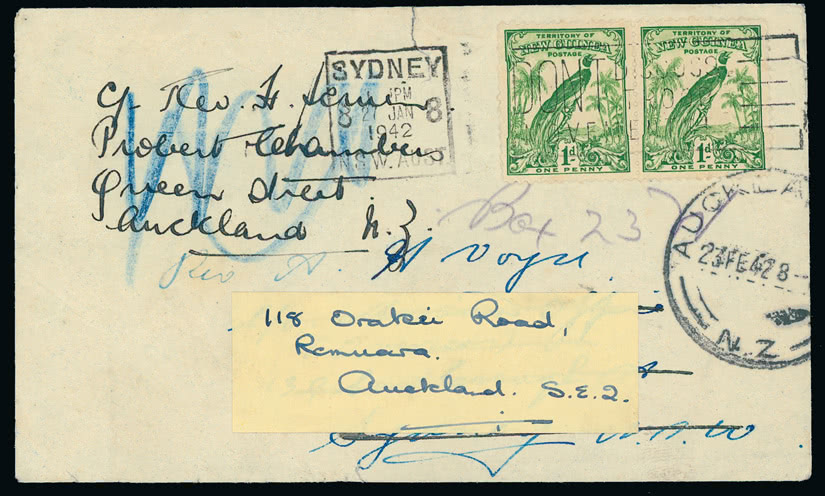 TERRITORY OF
NEW GUINEA
POSTAGE
1d
ONE PENNY
TERRITORY OF
NEW GUINEA
POSTAGE
1d
ONE PENNY
SYDNEY
1PM
8 27 JAN 8
1942
N.S.W. AUST
DON'T DISCUSS
c/- Rev. H.
Probert Chambers
Queen Street
Auckland N.Z.
Box 237
AUCKLA
23 FE 42 8-
N.Z
Rev A. H Voyce
118 Orakei Road,
Remuera.
Auckland. S.E.2.
Sydney N.S.W.